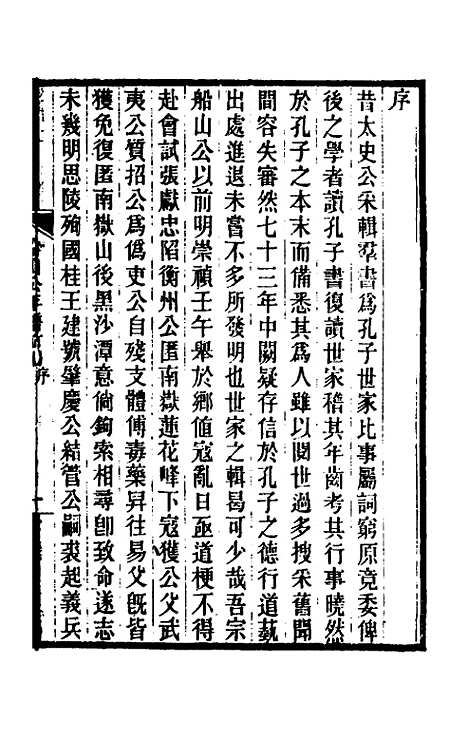 序
昔太史公采輯羣書爲孔子世家比事屬詞窮原竟委俾
後之學者讀孔子書復讀世家稽其年齒考其行事曉然
於孔子之本末而備悉其爲人雖以閱世過多搜采舊聞
間容失審然七十三年中闕疑存信於孔子之德行道藝
出處進退未嘗不多所發明也世家之輯曷可少哉吾宗
船山公以前明崇禎壬午舉於鄉値寇亂日亟道梗不得
赴會試張獻忠陷衡州公匿南嶽蓮花峰下寇獲公父武
夷公質招公爲僞吏公自殘支體傅毒藥舁往易父旣皆
獲免復匿南嶽山後黑沙潭意倘鉤索相尋卽致命遂志
未幾明思陵殉國桂王建號肇慶公結管公嗣裘起義兵
序